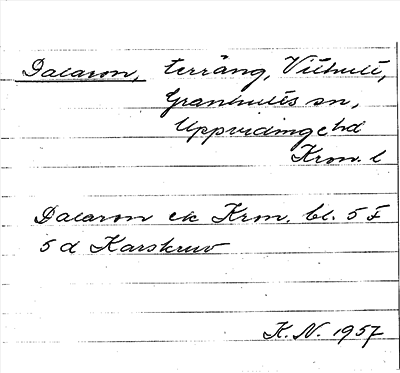 Dalaron, terräng, Vithult,
Granhults sn,
Uppvidinge hd
Kron. l
Dalaron ek Kron. bl. 5 F
5 d Karskruv
K. N. 1957